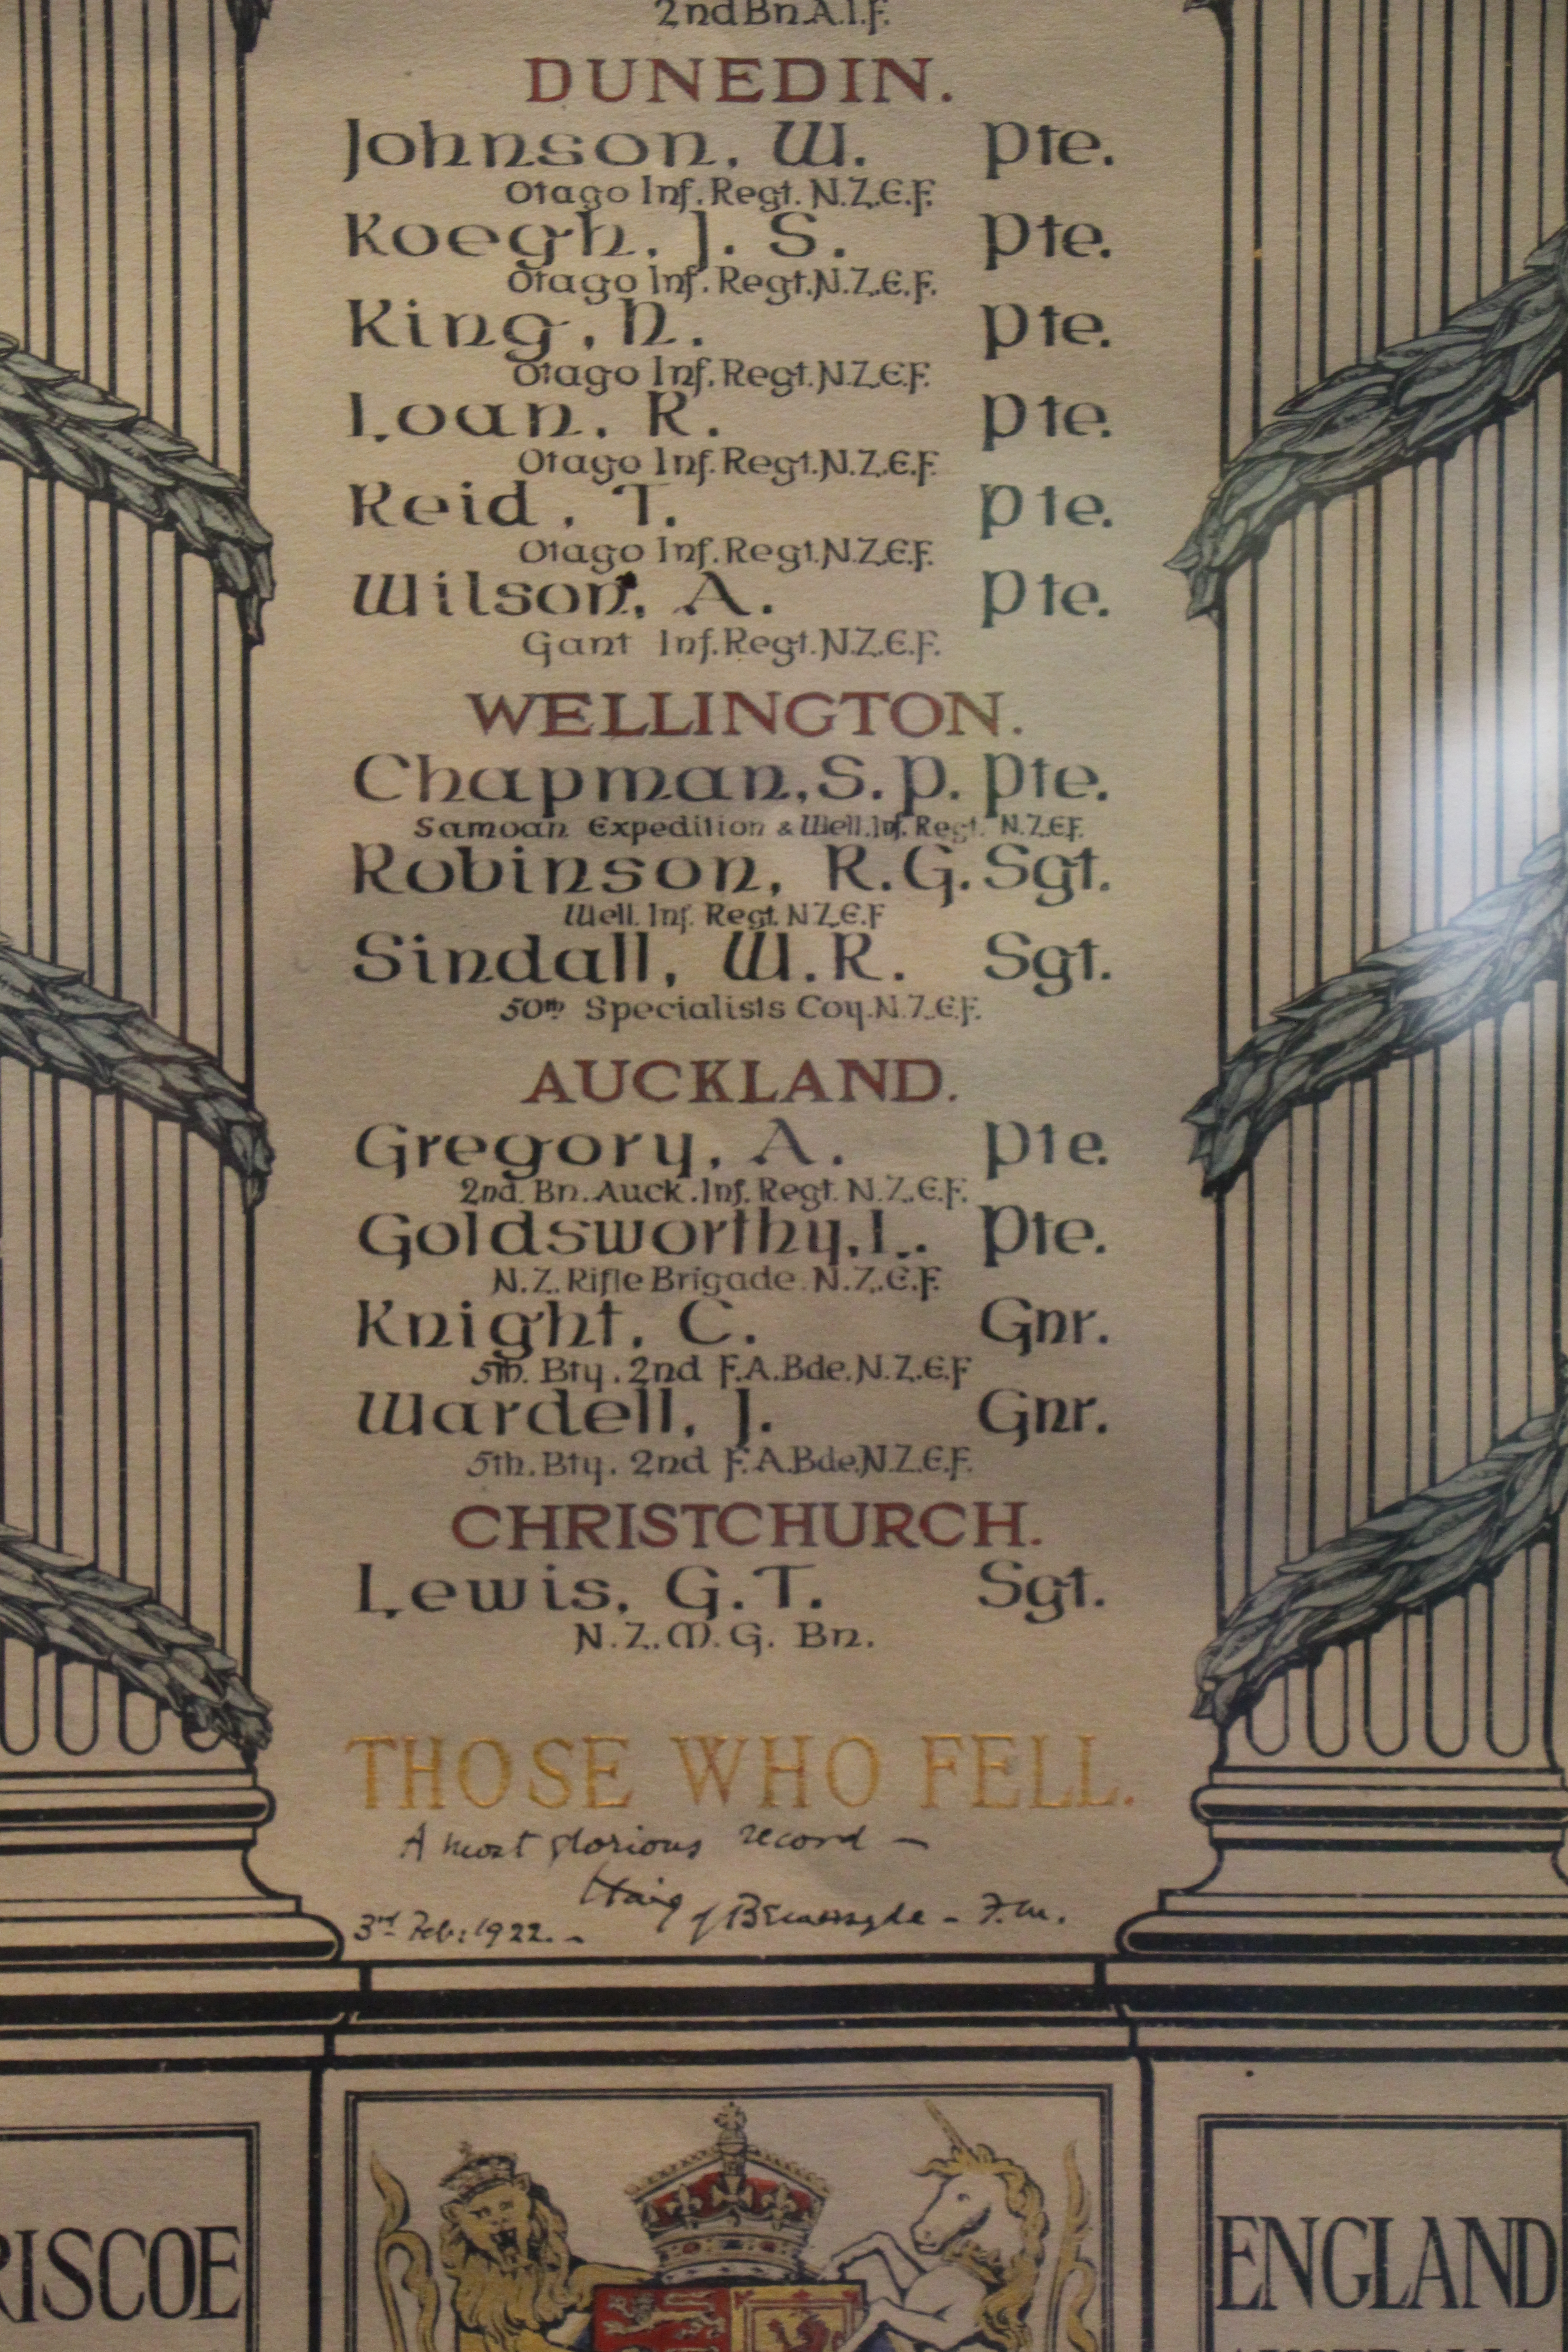 2nd Bn. A.I.F.
DUNEDIN.
Johnson, W. Pte.
Otago Inf. Regt. N.Z.E.F.
Koegh, J. S. Pte.
Otago Inf. Regt. N.Z.E.F.
King, N. Pte.
Otago Inf. Regt. N.Z.E.F.
Loan, R. Pte.
Otago Inf. Regt. N.Z.E.F.
Reid, T. Pte.
Otago Inf. Regt. N.Z.E.F.
Wilson, A. Pte.
Gant Inf. Regt. N.Z.E.F.
WELLINGTON.
Chapman, S. P. Pte.
Samoan Expedition & Well. Inf. Regt. N.Z.E.F.
Robinson, R. G. Sgt.
Well. Inf. Regt. N.Z.E.F
Sindall, W. R. Sgt.
50th Specialists Coy. N.Z.E.F.
AUCKLAND.
Gregory, A. Pte.
2nd. Bn. Auck. Inf. Regt. N.Z.E.F.
Goldsworthy, L. Pte.
N.Z. Rifle Brigade. N.Z.E.F.
Knight, C. Gnr.
5th. Bty. 2nd F.A. Bde. N.Z.E.F
Wardell, J. Gnr.
5th. Bty. 2nd F.A. Bde. N.Z.E.F.
CHRISTCHURCH.
Lewis, G. T. Sgt.
N.Z.M.G. Bn.
THOSE WHO FELL.
A most glorious record —
Haig of Bemersyde - F.M.
3rd Feb: 1922. -
RISCOE
ENGLAND